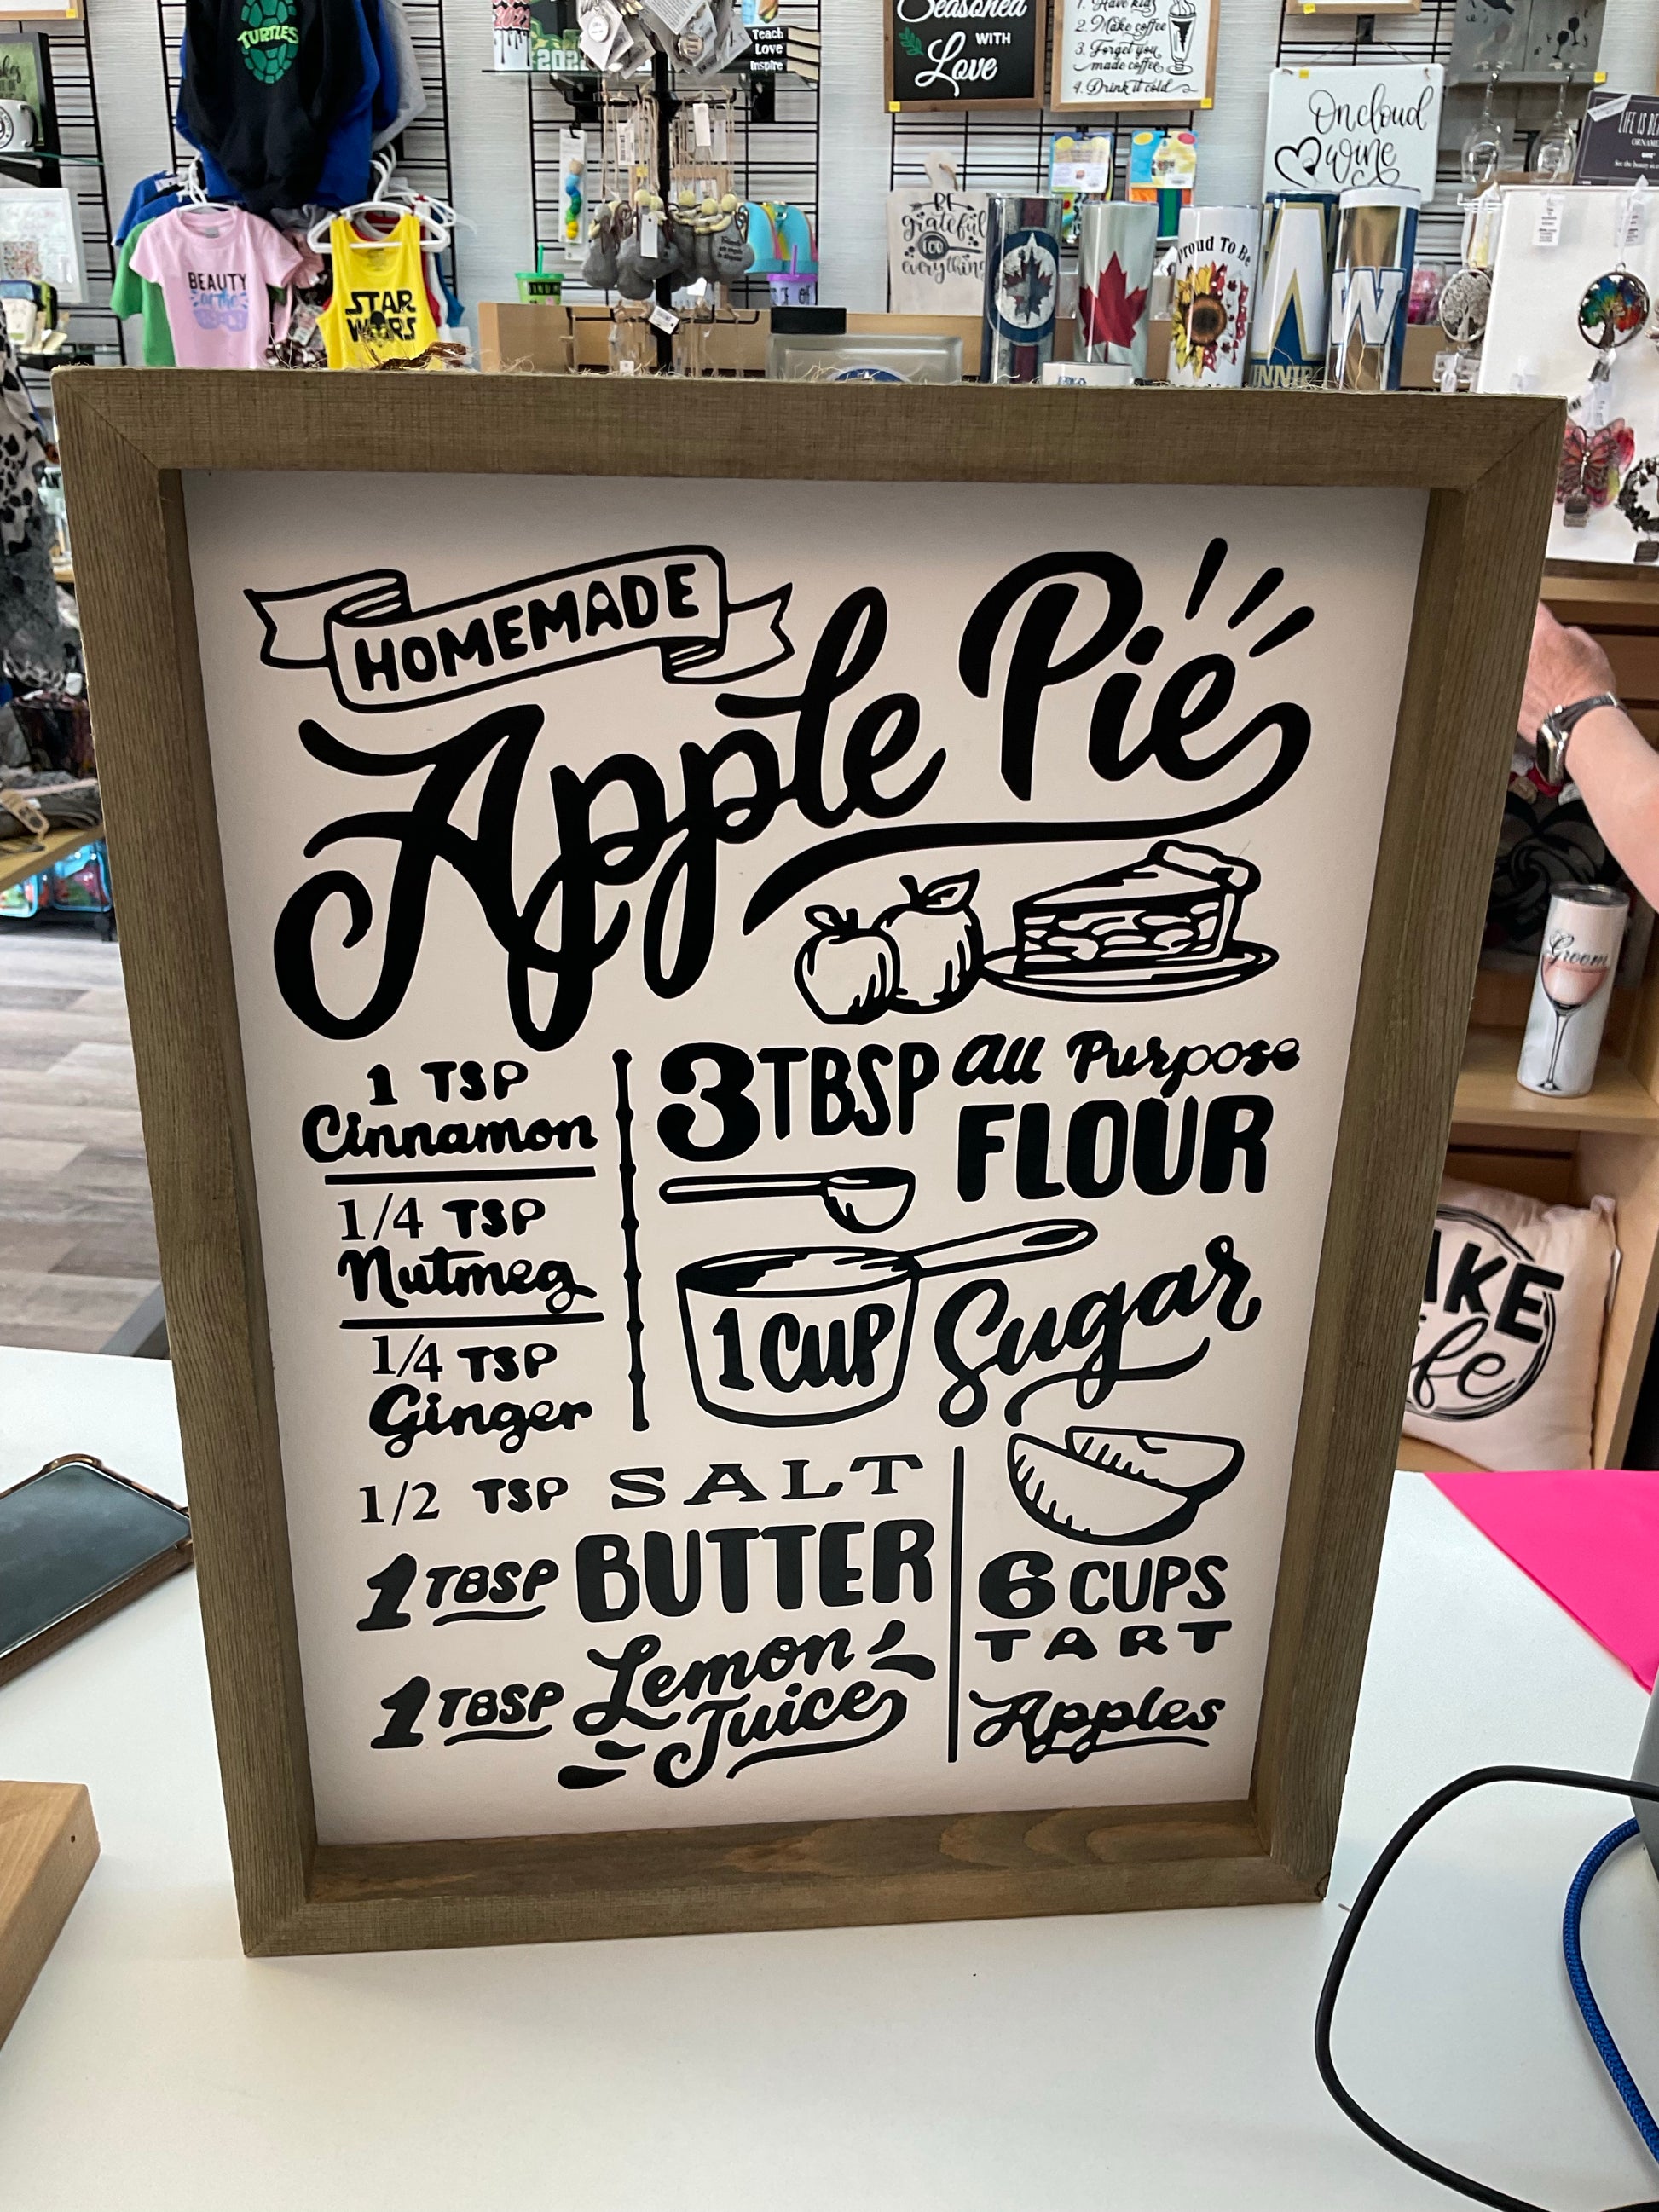 TURTLES
Teach
Love
Inspire
Seasoned
WITH
Love
1. Have kids
2. Make coffee
3. Forget you
made coffee
4. Drink it cold
On cloud
wine
LIFE IS
BEAUTY
STAR
WARS
BE
grateful
FOR
everything
Proud To Be
W
HOMEMADE
Apple Pie
1 TSP
Cinnamon
1/4 TSP
Nutmeg
1/4 TSP
Ginger
3 TBSP all Purpose
FLOUR
1 CUP Sugar
1/2 TSP SALT
1 TBSP BUTTER
1 TBSP Lemon
Juice
6 CUPS
TART
Apples
Groom
AKE
fe